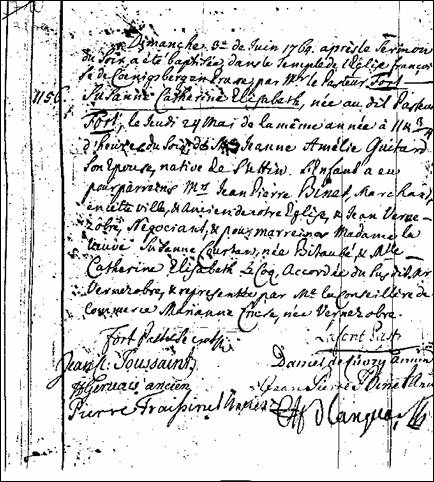 Dimanche 3me de Juin 1764. après le Sermon
du Soir, a été baptisée, dans le Temple de l'Eglise françoi-
se de Coenigsberg en Prusse, par Mr. le Pasteur, Fort
1156
Susanne Catherine Elisabeth, née au dit Pasteur
Fort, le Jeudi 24 Mai de la même année à 11 & 3/4
d'heures du Soir, de Jeanne Amélie Guitard
Son Epouse, native de Stettin. L'Enfant a eu
pour parreins Mrs. Jean Pierre Binet, Marchand
en cette ville, & Ancien de notre Eglise, & Jean Verne-
zobre, Négociant, & pour marreines Madame la
veuve Susanne Courton, née Bitaubé, & Mlle
Catherine Elisabeth Le Coq, Accordée du Susdit Mr
Vernezobre, & représentée par Me. la Conseillère de
Commerce Marianne née Vernezobre.
Fort Pasteur
Lafont Past
Jean Toussaint
Daniel ancien
Gervais ancien
Jean Pierre Binet Anc
Pierre Fraissinet Ancien